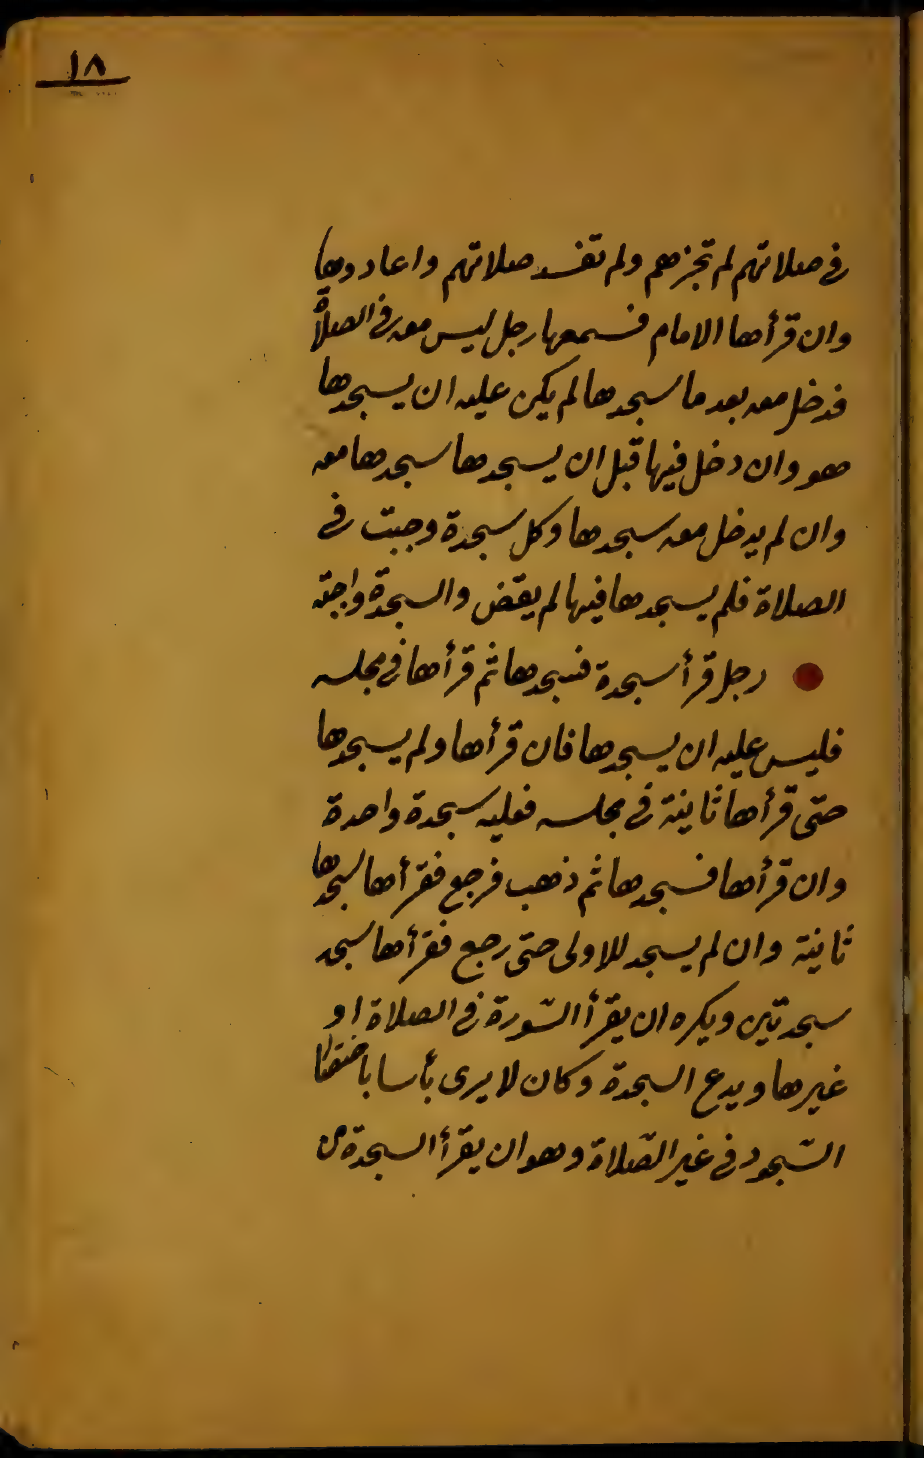 ١٨
في صلاتهم لم تجزهم ولم تفسد صلاتهم واعادوها
وان قرأها الامام فسمعها رجل ليس معه في الصلاة
فدخل معه بعد ما سجدها لم يكن عليه ان يسجدها
هو وان دخل فيها قبل ان يسجدها سجدها معه
وان لم يدخل معه سجدها وكل سجدة وجبت في
الصلاة فلم يسجدها فيها لم يقض والسجدة واجبة
رجل قرأ سجدة فسجدها ثم قرأها في مجلسه
فليس عليه ان يسجدها فان قرأها ولم يسجدها
حتى قرأها ثانية في مجلسه فعليه سجدة واحدة
وان قرأها فسجدها ثم ذهب فرجع فقرأها سجدها
ثانية وان لم يسجد للاولى حتى رجع فقرأها سجد
سجدتين ويكره ان يقرأ السّورة في الصلاة او
غيرها ويدع السجدة وكان لا يرى بأسا باختصار
السّجود في غير الصّلاة وهو ان يقرأ السجدة من